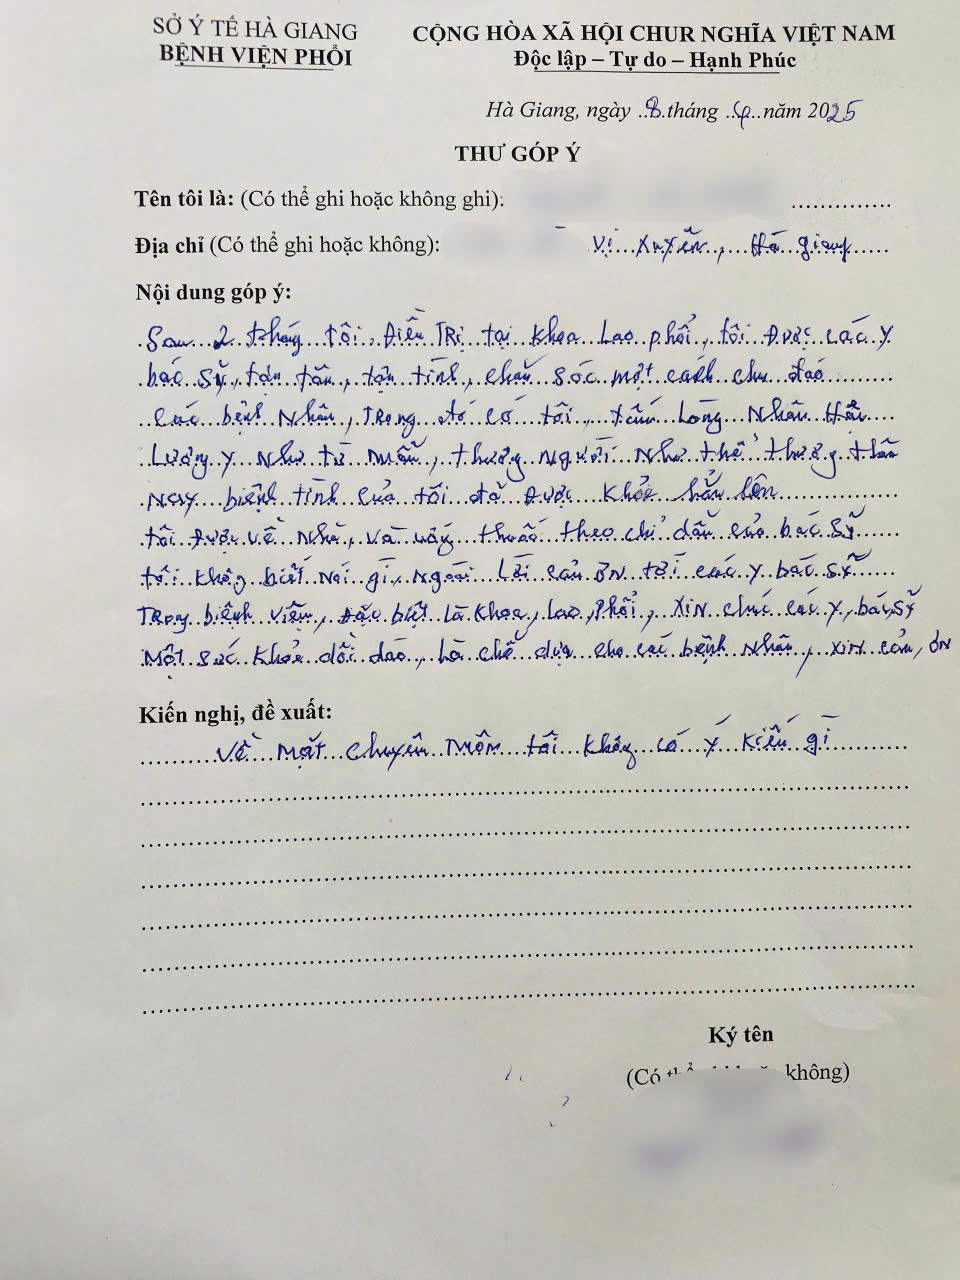 SỞ Y TẾ HÀ GIANG
BỆNH VIỆN PHỔI
CỘNG HÒA XÃ HỘI CHUR NGHĨA VIỆT NAM
Độc lập – Tự do – Hạnh Phúc
Hà Giang, ngày ..8.tháng ..4..năm 2025
THƯ GÓP Ý
Tên tôi là: (Có thể ghi hoặc không ghi): ..............
Địa chỉ (Có thể ghi hoặc không): Vị Xuyên, Hà Giang
Nội dung góp ý:
Sau 2 tháng tôi, Điều TRị tại Khoa Lao phổi, tôi Được các y
bác sỹ, tận tâm, tận tình, chăm sóc một cách chu đáo
các bệnh Nhân, TRong đó có tôi, tấm Lòng Nhân Hậu
Lương y Như từ mẫu, thương Người Như thể thương thân
Nay biệnh tình của tôi đã Được Khỏe hẳn lên
tôi Được về Nhà, và uống thuốc theo chỉ dẫn của bác sỹ
tôi không biết Nói gì, Ngoài Lời cảm ƠN tới các y bác sỹ
TRong biệnh viện, Đặc biệt là Khoa, Lao, Phổi, XIN chúc các y, bác, sỹ
Một sức Khỏe dồi dào, Là chỗ dựa cho các bệnh Nhân, XIN cảm, ơn
Kiến nghị, đề xuất:
Về mặt chuyên môn tôi không có ý kiến gì
Ký tên
(Có không)